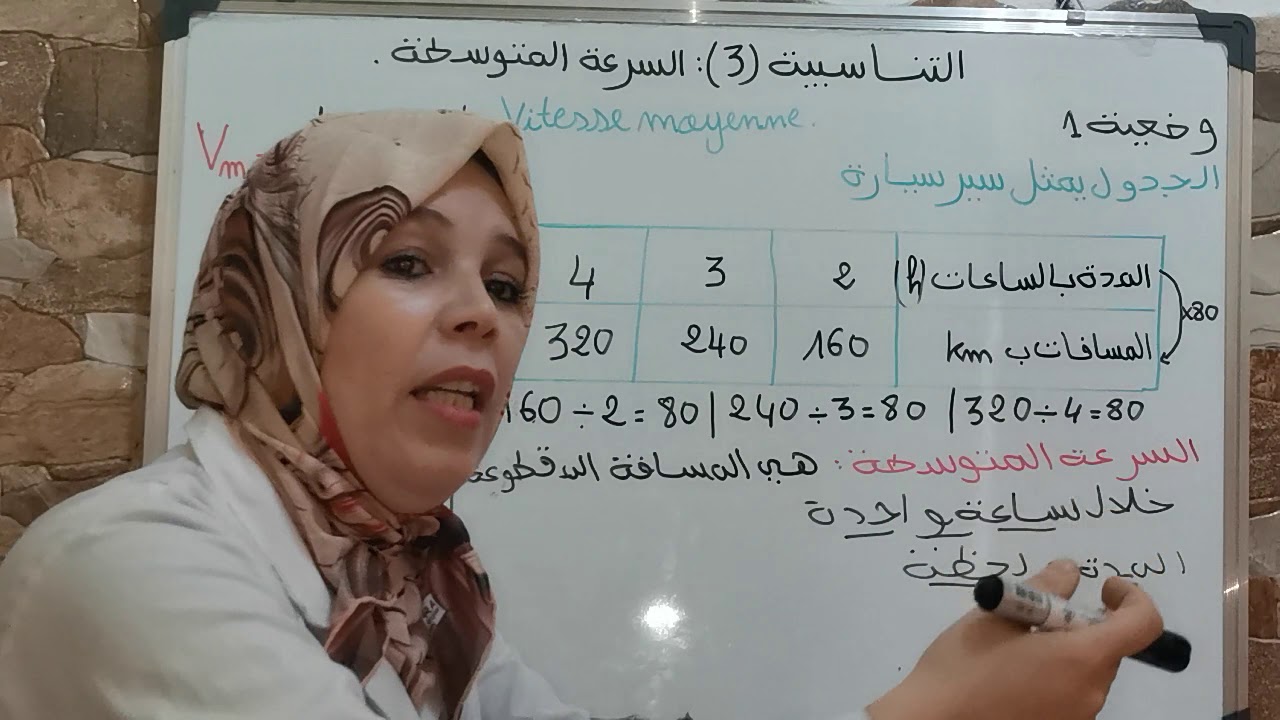 التناسبية (3): السرعة المتوسطة.
Vitesse moyenne.
Vm
وضعية 1
الجدول يمثل سير سيارة
المدة بالساعات (h) 2 3 4
×80
المسافات ب km 160 240 320
160 ÷ 2 = 80 | 240 ÷ 3 = 80 | 320 ÷ 4 = 80
السرعة المتوسطة: هي المسافة المقطوعة
خلال ساعة واحدة
المدة لحظة